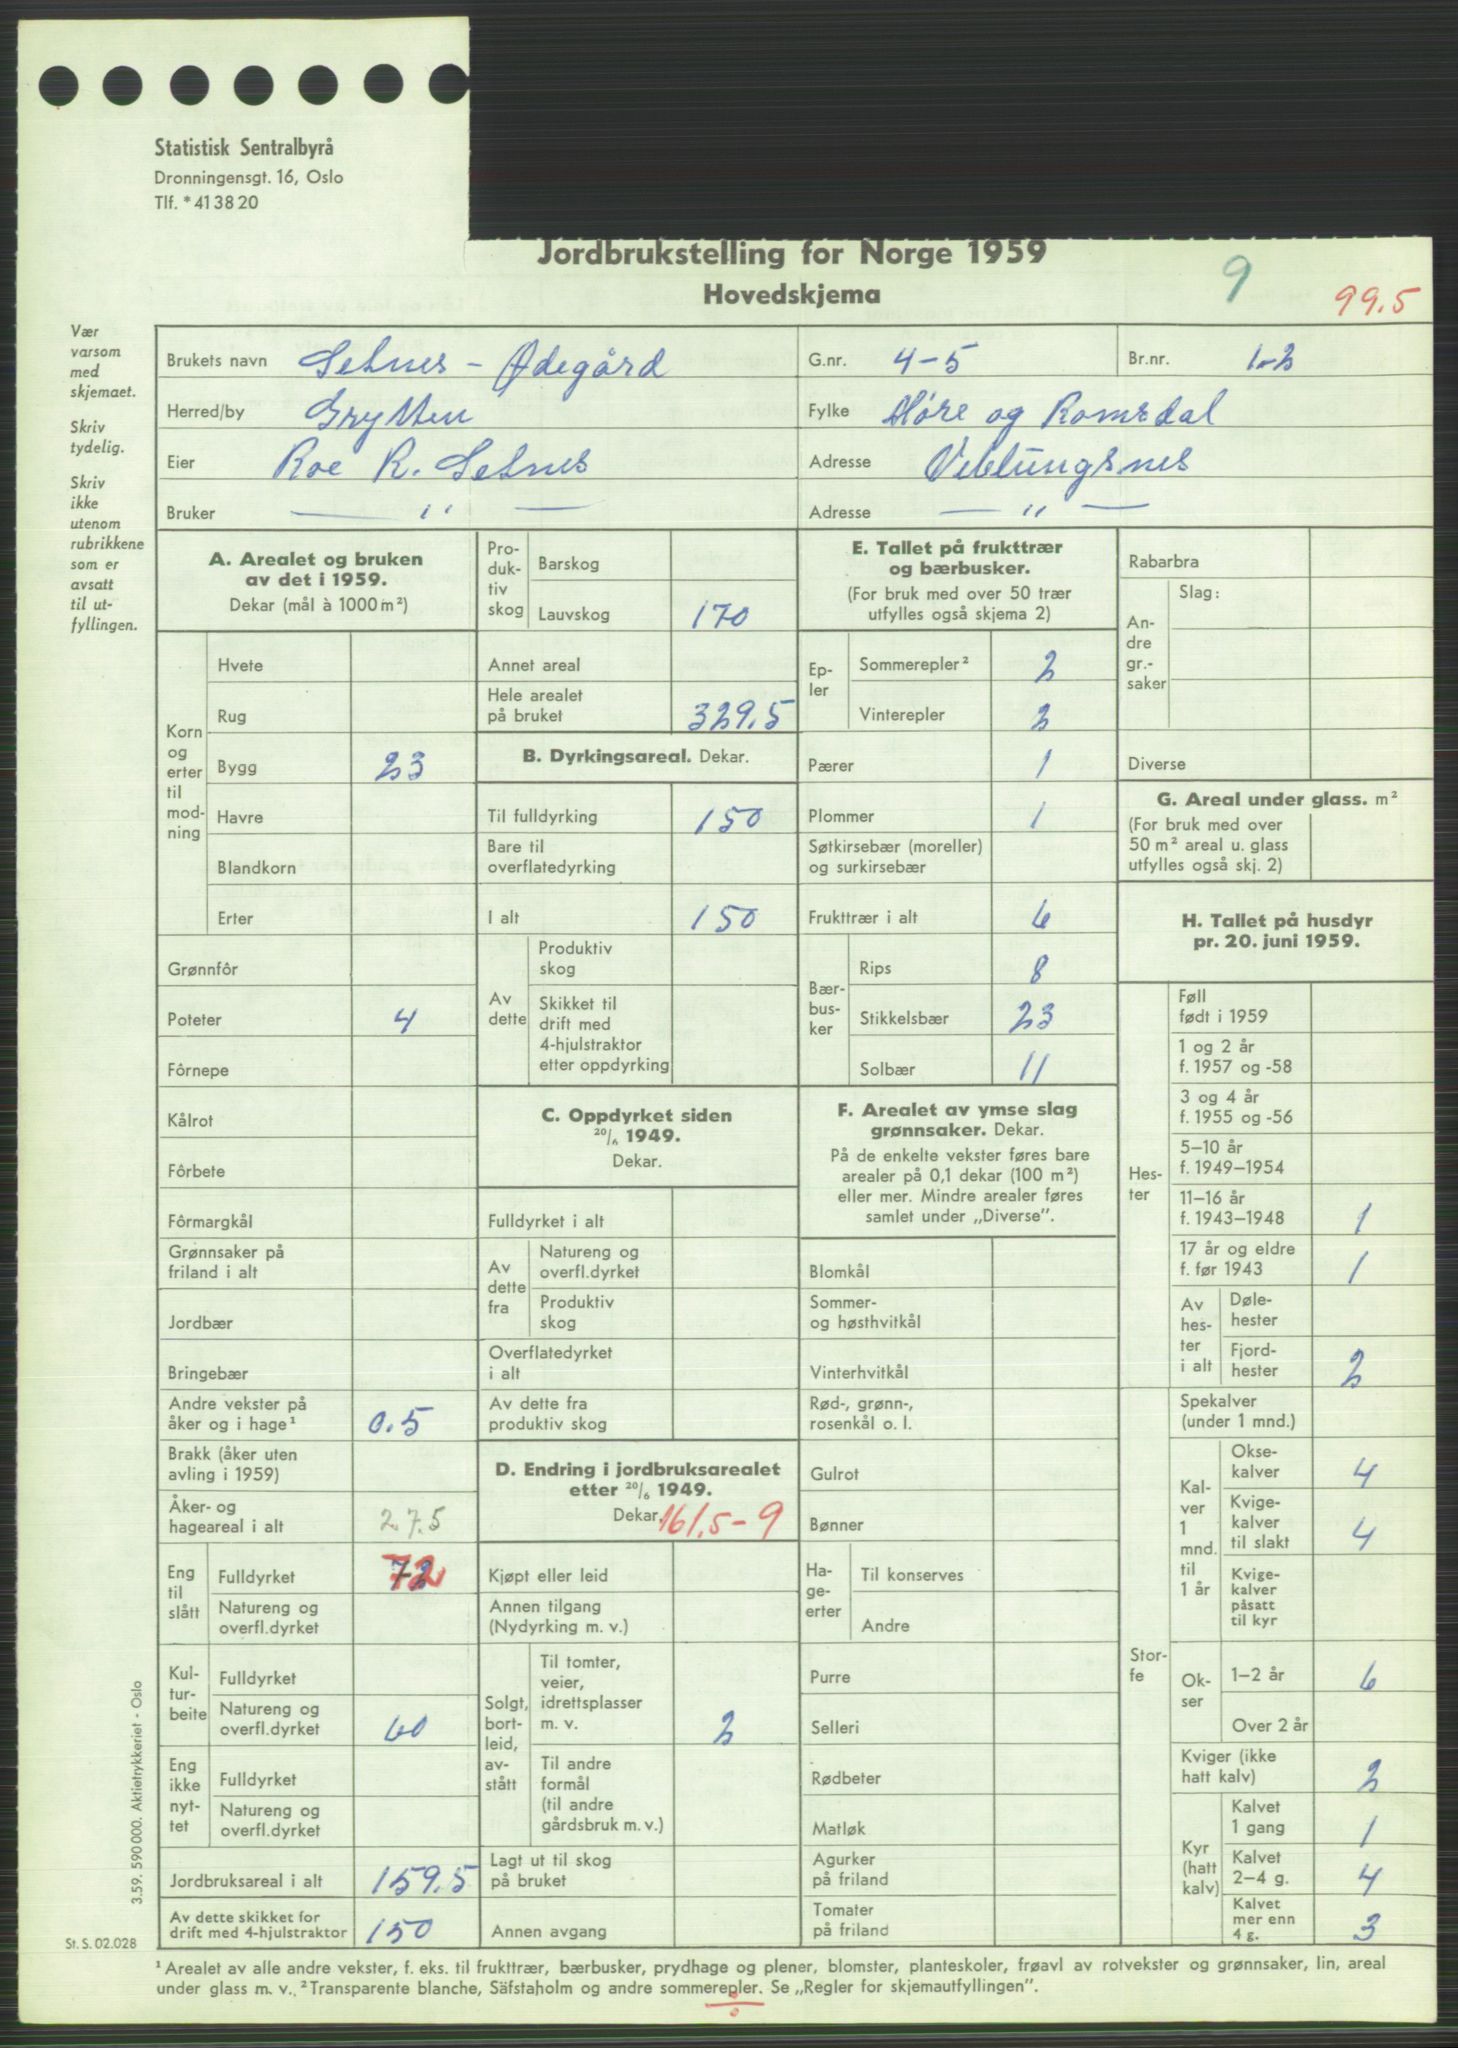 Statistisk Sentralbyrå
Dronningensgt. 16, Oslo
Tlf. * 41 38 20
Jordbrukstelling for Norge 1959
Hovedskjema
9
99.5
Vær
varsom
med
skjemaet.
Skriv
tydelig.
Skriv
ikke
utenom
rubrikkene
som er
avsatt
til ut-
fyllingen.
Brukets navn Setnes - Ødegård G.nr. 4-5 Br.nr. 1-2
Herred/by Grytten Fylke Møre og Romsdal
Eier Roe R. Setnes Adresse Veblungsnes
Bruker — " — Adresse — " —
A. Arealet og bruken
av det i 1959.
Dekar (mål à 1000 m²)
Korn
og
erter
til
mod-
ning
Hvete
Rug
Bygg 23
Havre
Blandkorn
Erter
Grønnfôr
Poteter 4
Fôrnepe
Kålrot
Fôrbete
Fôrmargkål
Grønnsaker på
friland i alt
Jordbær
Bringebær
Andre vekster på
åker og i hage¹ 0.5
Brakk (åker uten
avling i 1959)
Åker- og
hageareal i alt 27.5
Eng
til
slått
Fulldyrket 72
Natureng og
overfl.dyrket
Kul-
tur-
beite
Fulldyrket
Natureng og
overfl.dyrket 60
Eng
ikke
nyt-
tet
Fulldyrket
Natureng og
overfl.dyrket
Jordbruksareal i alt 159.5
Av dette skikket for
drift med 4-hjulstraktor 150
Pro-
duk-
tiv
skog
Barskog
Lauvskog 170
Annet areal
Hele arealet
på bruket 329.5
B. Dyrkingsareal. Dekar.
Til fulldyrking 150
Bare til
overflatedyrking
I alt 150
Av
dette
Produktiv
skog
Skikket til
drift med
4-hjulstraktor
etter oppdyrking
C. Oppdyrket siden
20/6 1949.
Dekar.
Fulldyrket i alt
Av
dette
fra
Natureng og
overfl.dyrket
Produktiv
skog
Overflatedyrket
i alt
Av dette fra
produktiv skog
D. Endring i jordbruksarealet
etter 20/6 1949.
Dekar. 161.5-9
Kjøpt eller leid
Annen tilgang
(Nydyrking m. v.)
Solgt,
bort-
leid,
av-
stått
Til tomter,
veier,
idrettsplasser
m. v. 2
Til andre
formål
(til andre
gårdsbruk m. v.)
Lagt ut til skog
på bruket
Annen avgang
E. Tallet på frukttrær
og bærbusker.
(For bruk med over 50 trær
utfylles også skjema 2)
Ep-
ler
Sommerepler² 2
Vinterepler 2
Pærer 1
Plommer 1
Søtkirsebær (moreller)
og surkirsebær
Frukttrær i alt 6
Bær-
bus-
ker
Rips 8
Stikkelsbær 23
Solbær 11
F. Arealet av ymse slag
grønnsaker. Dekar.
På de enkelte vekster føres bare
arealer på 0,1 dekar (100 m²)
eller mer. Mindre arealer føres
samlet under „Diverse”.
Blomkål
Sommer-
og høsthvitkål
Vinterhvitkål
Rød-, grønn-,
rosenkål o. l.
Gulrot
Bønner
Ha-
ge-
erter
Til konserves
Andre
Purre
Selleri
Rødbeter
Matløk
Agurker
på friland
Tomater
på friland
Rabarbra
An-
dre
gr.-
saker
Slag:
Diverse
G. Areal under glass. m²
(For bruk med over
50 m² areal u. glass
utfylles også skj. 2)
H. Tallet på husdyr
pr. 20. juni 1959.
Hes-
ter
Føll
født i 1959
1 og 2 år
f. 1957 og -58
3 og 4 år
f. 1955 og -56
5–10 år
f. 1949–1954
11–16 år
f. 1943–1948 1
17 år og eldre
f. før 1943 1
Av
hes-
ter
i alt
Døle-
hester
Fjord-
hester 2
Stor-
fe
Spekalver
(under 1 mnd.)
Kal-
ver
1
mnd.
til
1 år
Okse-
kalver 4
Kvige-
kalver
til slakt 4
Kvige-
kalver
påsatt
til kyr
Ok-
ser
1–2 år 6
Over 2 år
Kviger (ikke
hatt kalv) 2
Kyr
(hatt
kalv)
Kalvet
1 gang 1
Kalvet
2–4 g. 4
Kalvet
mer enn
4 g. 3
3.59. 590 000. Aktietrykkeriet - Oslo
St. S. 02.028
¹ Arealet av alle andre vekster, f. eks. til frukttrær, bærbusker, prydhage og plener, blomster, planteskoler, frøavl av rotvekster og grønnsaker, lin, areal
under glass m. v. ² Transparente blanche, Säfstaholm og andre sommerepler. Se „Regler for skjemautfyllingen”.
÷